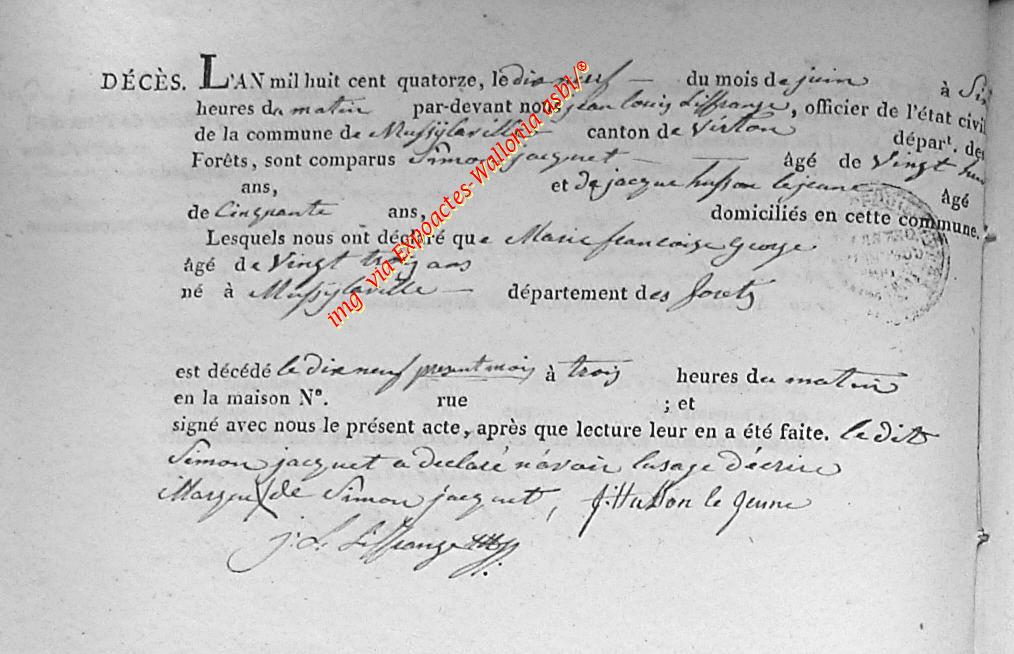 DÉCÈS. L'AN mil huit cent quatorze, le dix neuf — du mois de juin à Six
heures du matin par-devant nous jean Louis Liffrange, officier de l'état civil
de la commune de Mussÿlaville — canton de Virton départ. des
Forêts, sont comparus Simon jacquet — — âgé de Vingt
ans, et de jacque husson lejeune âgé
de Cinquante ans, domiciliés en cette commune.
Lesquels nous ont déclaré que Marie francoise George
âgé de Vingt trois ans
né à Mussÿlaville — département des forets
est décédé le dix neuf present mois à trois heures du matin
en la maison Nº. rue ; et
signé avec nous le présent acte, après que lecture leur en a été faite. le dit
Simon jacquet a declaré n'avoir lusage d'écrire
Marque X de Simon jacquet, J. Husson le Jeune
j. L. Liffrange
img via Expoactes-Wallonia asbl/©